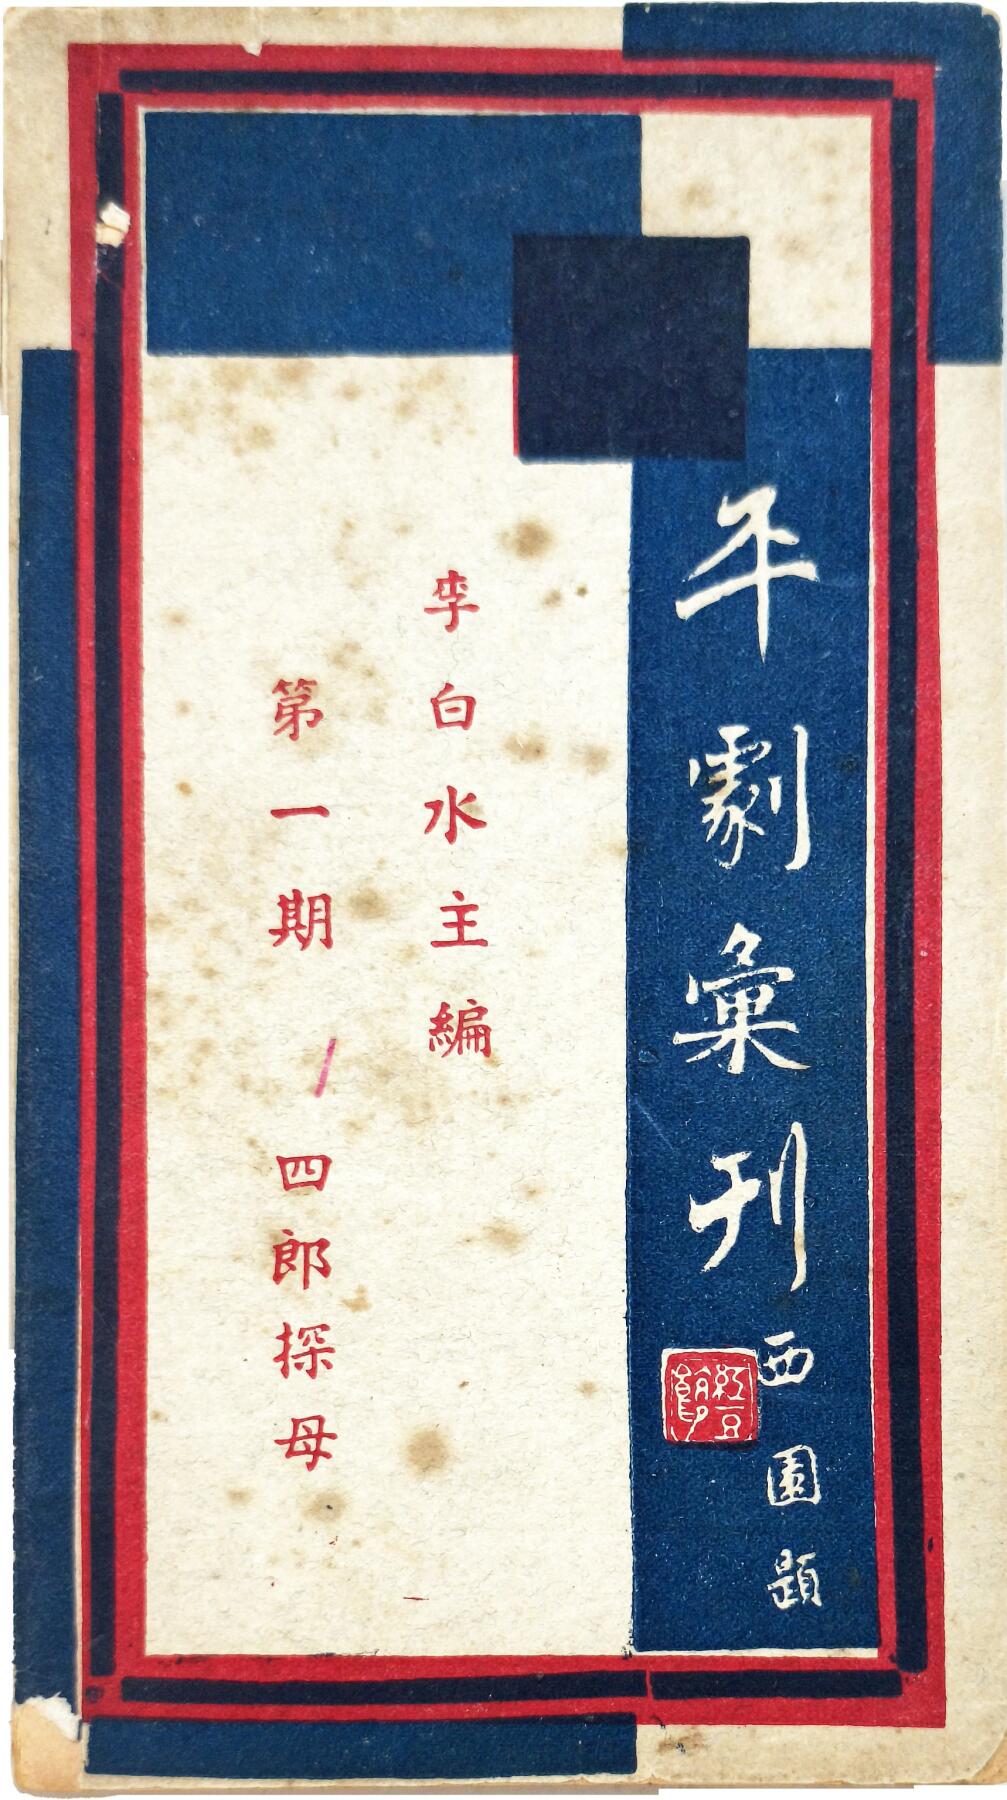 平劇彙刊
西園題
紅豆館
李白水主編
第一期 四郎探母